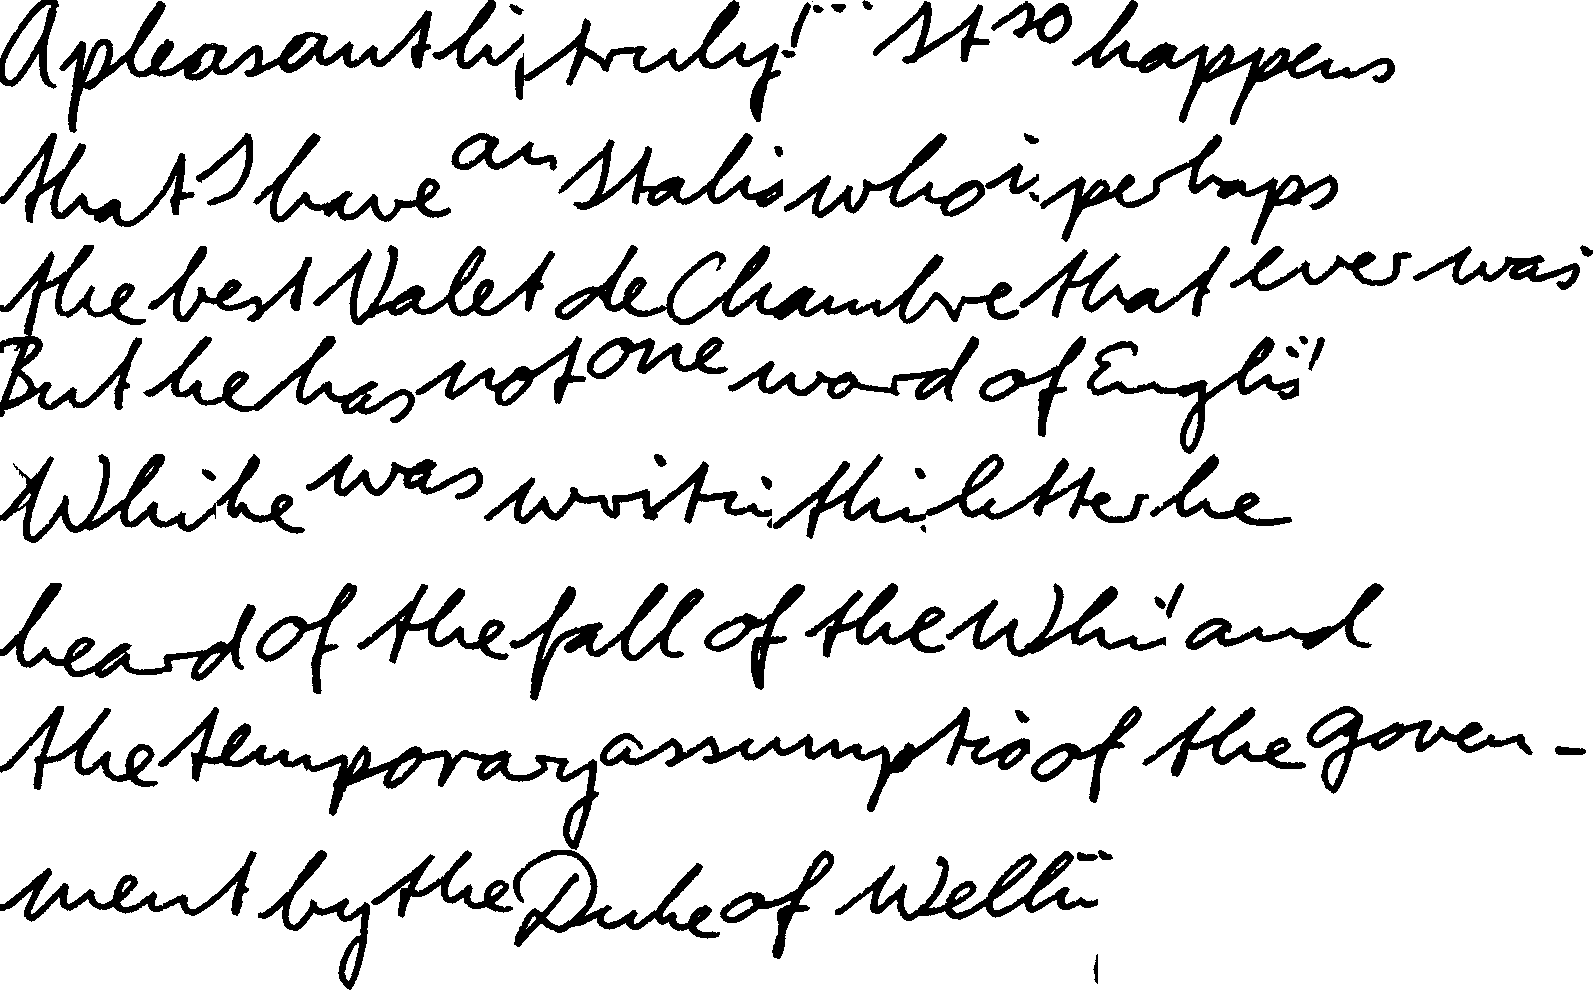 A pleasant li, truly!... It so happens
that I have an Italia who i perhaps
the best Valet de Chambre that ever was
But he has not one word of Englis!
Whi he was writi thi letter he
heard of the fall of the Whi! and
the temporary assumptio of the Goven-
ment by the Duke of Welli